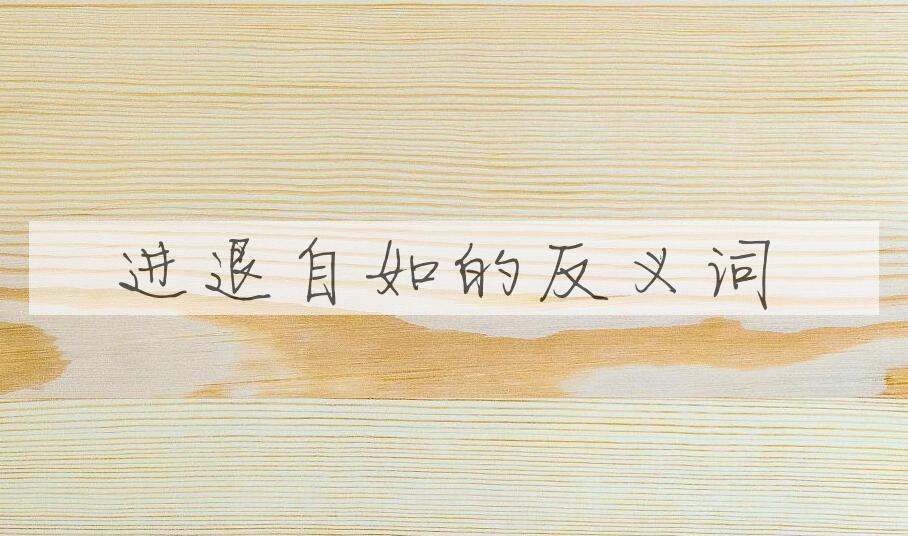 进退自如的反义词